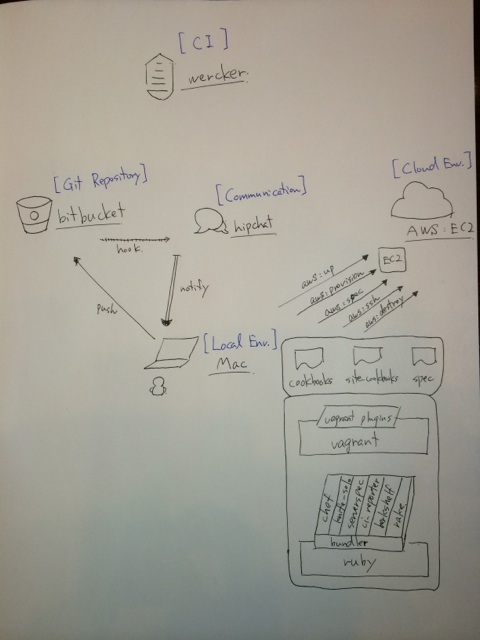 [CI]
wercker.
[Git Repository]
bitbucket
[Communication]
hipchat
[Cloud Env.]
AWS : EC2
hook.
EC2
aws:up
aws:provision
aws:spec
aws:ssh
aws:destroy
push
notify
[Local Env.]
Mac.
cookbooks
site-cookbooks
spec
vagrant plugins
vagrant
chef
knife-solo
serverspec
ci_reporter
berkshelf
rake
bundler
ruby